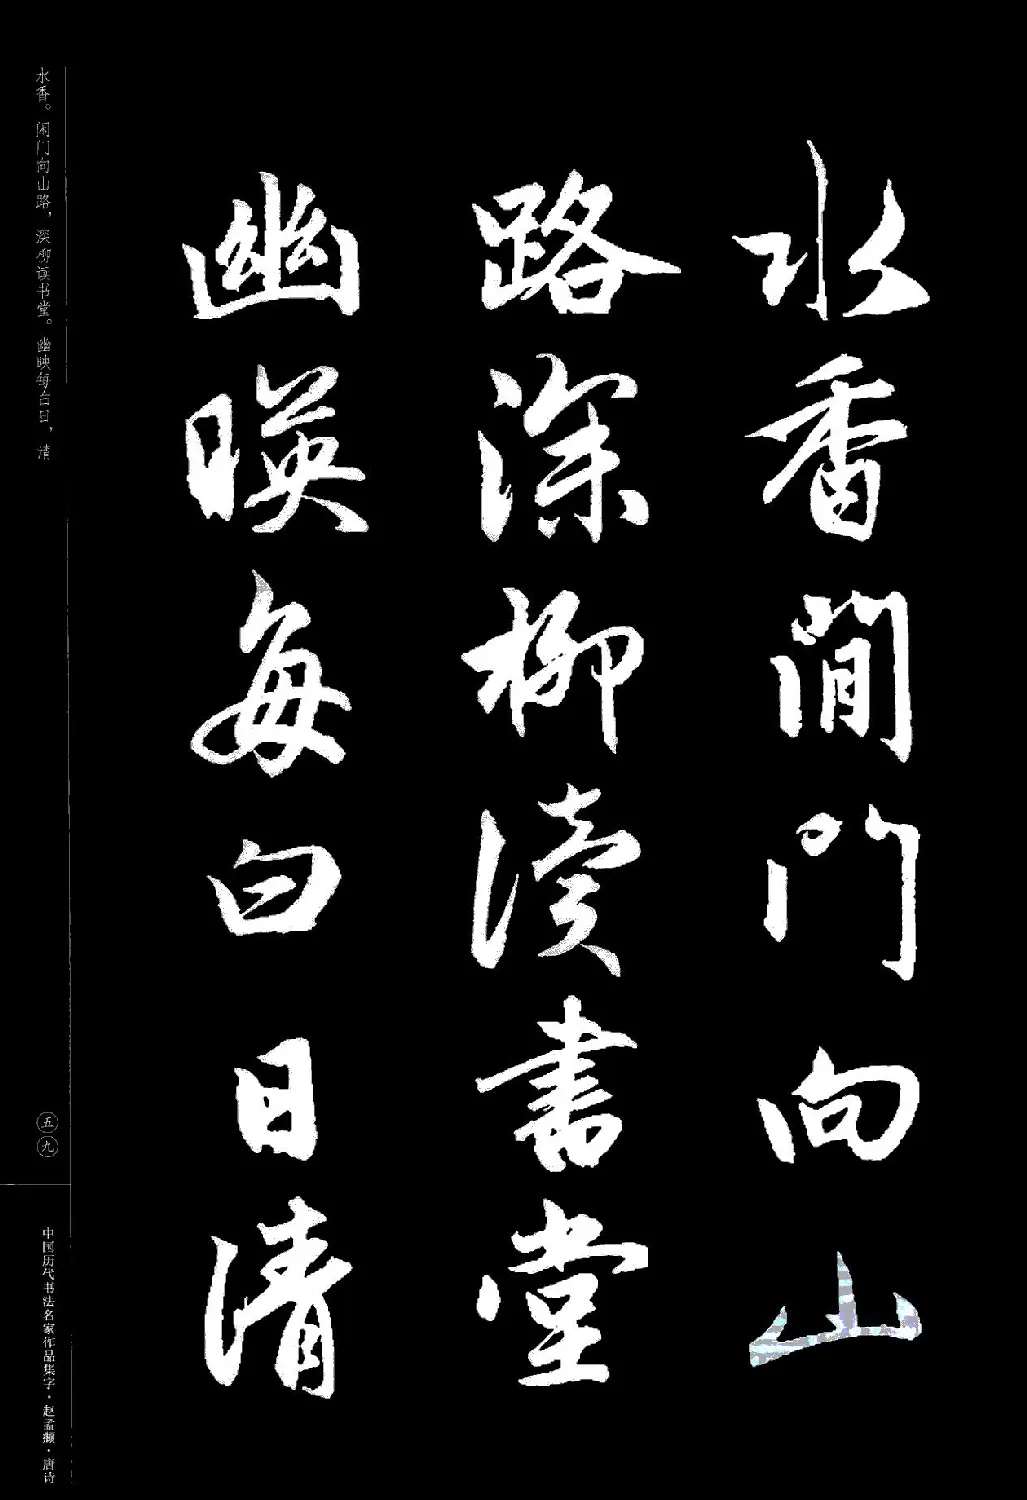 水香閒門向山
路深柳讀書堂
幽暎每白日清
水香。闲门向山路，深柳读书堂。幽映每白日，清
五九
中国历代书法名家作品集字·赵孟頫·唐诗